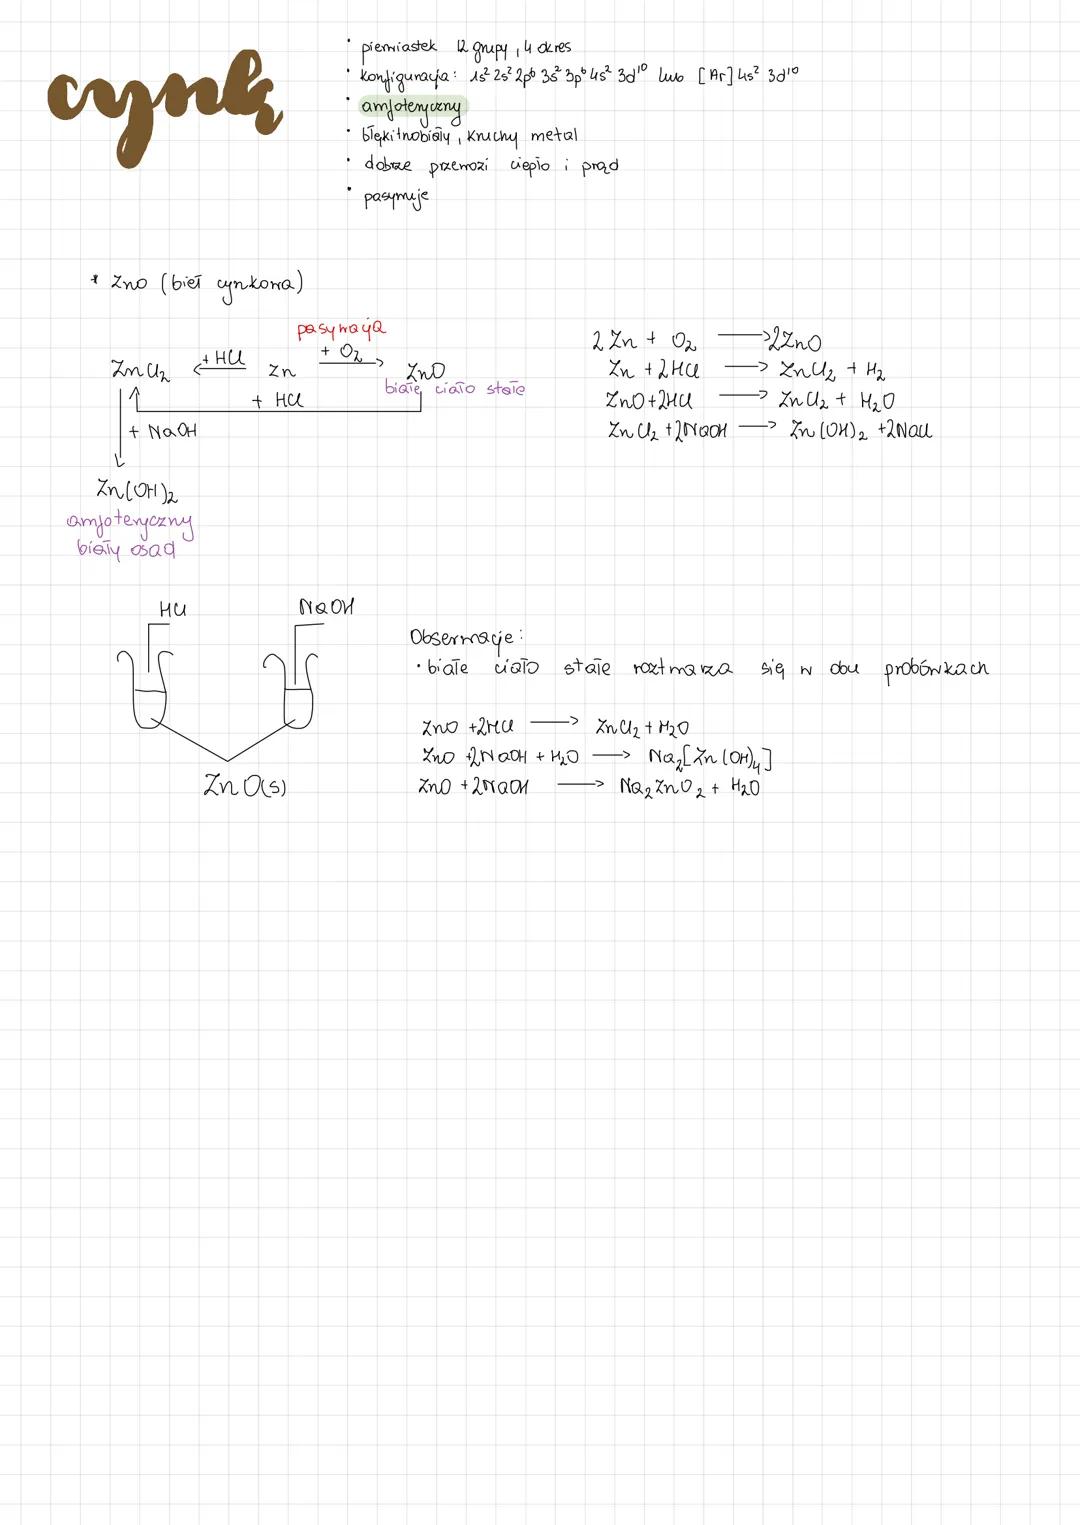 cynk
• pierwiastek 12 grupy, 4 okres
• konfiguracja: 1s² 2s² 2p⁶ 3s² 3p⁶ 4s² 3d¹⁰ lub [Ar] 4s² 3d¹⁰
• amfoteryczny
• błękitnobiały, kruchy metal
• dobrze przewozi ciepło i prąd
• pasywuje
* ZnO (biel cynkowa)
pasywacja
ZnCl₂ ← + HCl Zn + O₂ → ZnO
białe ciało stałe
+ HCl
+ NaOH
Zn(OH)₂
amfoteryczny
biały osad
2Zn + O₂ → 2ZnO
Zn + 2HCl → ZnCl₂ + H₂
ZnO + 2HCl → ZnCl₂ + H₂O
ZnCl₂ + 2NaOH → Zn(OH)₂ + 2NaCl
HCl NaOH
ZnO(s)
Obserwacje:
• białe ciało stałe roztwarza się w obu probówkach
ZnO + 2HCl → ZnCl₂ + H₂O
ZnO + 2NaOH + H₂O → Na₂[Zn(OH)₄]
ZnO + 2NaOH → Na₂ZnO₂ + H₂O